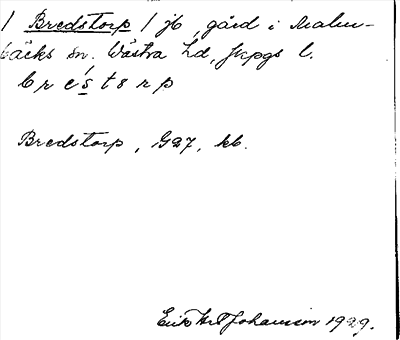 / Bredstorp / jb, gård i Malm-
bäcks sn. Västra hd, Jkpgs l.
bre's torp
Bredstorp, G27, kb.
Erik Johansson 1929.